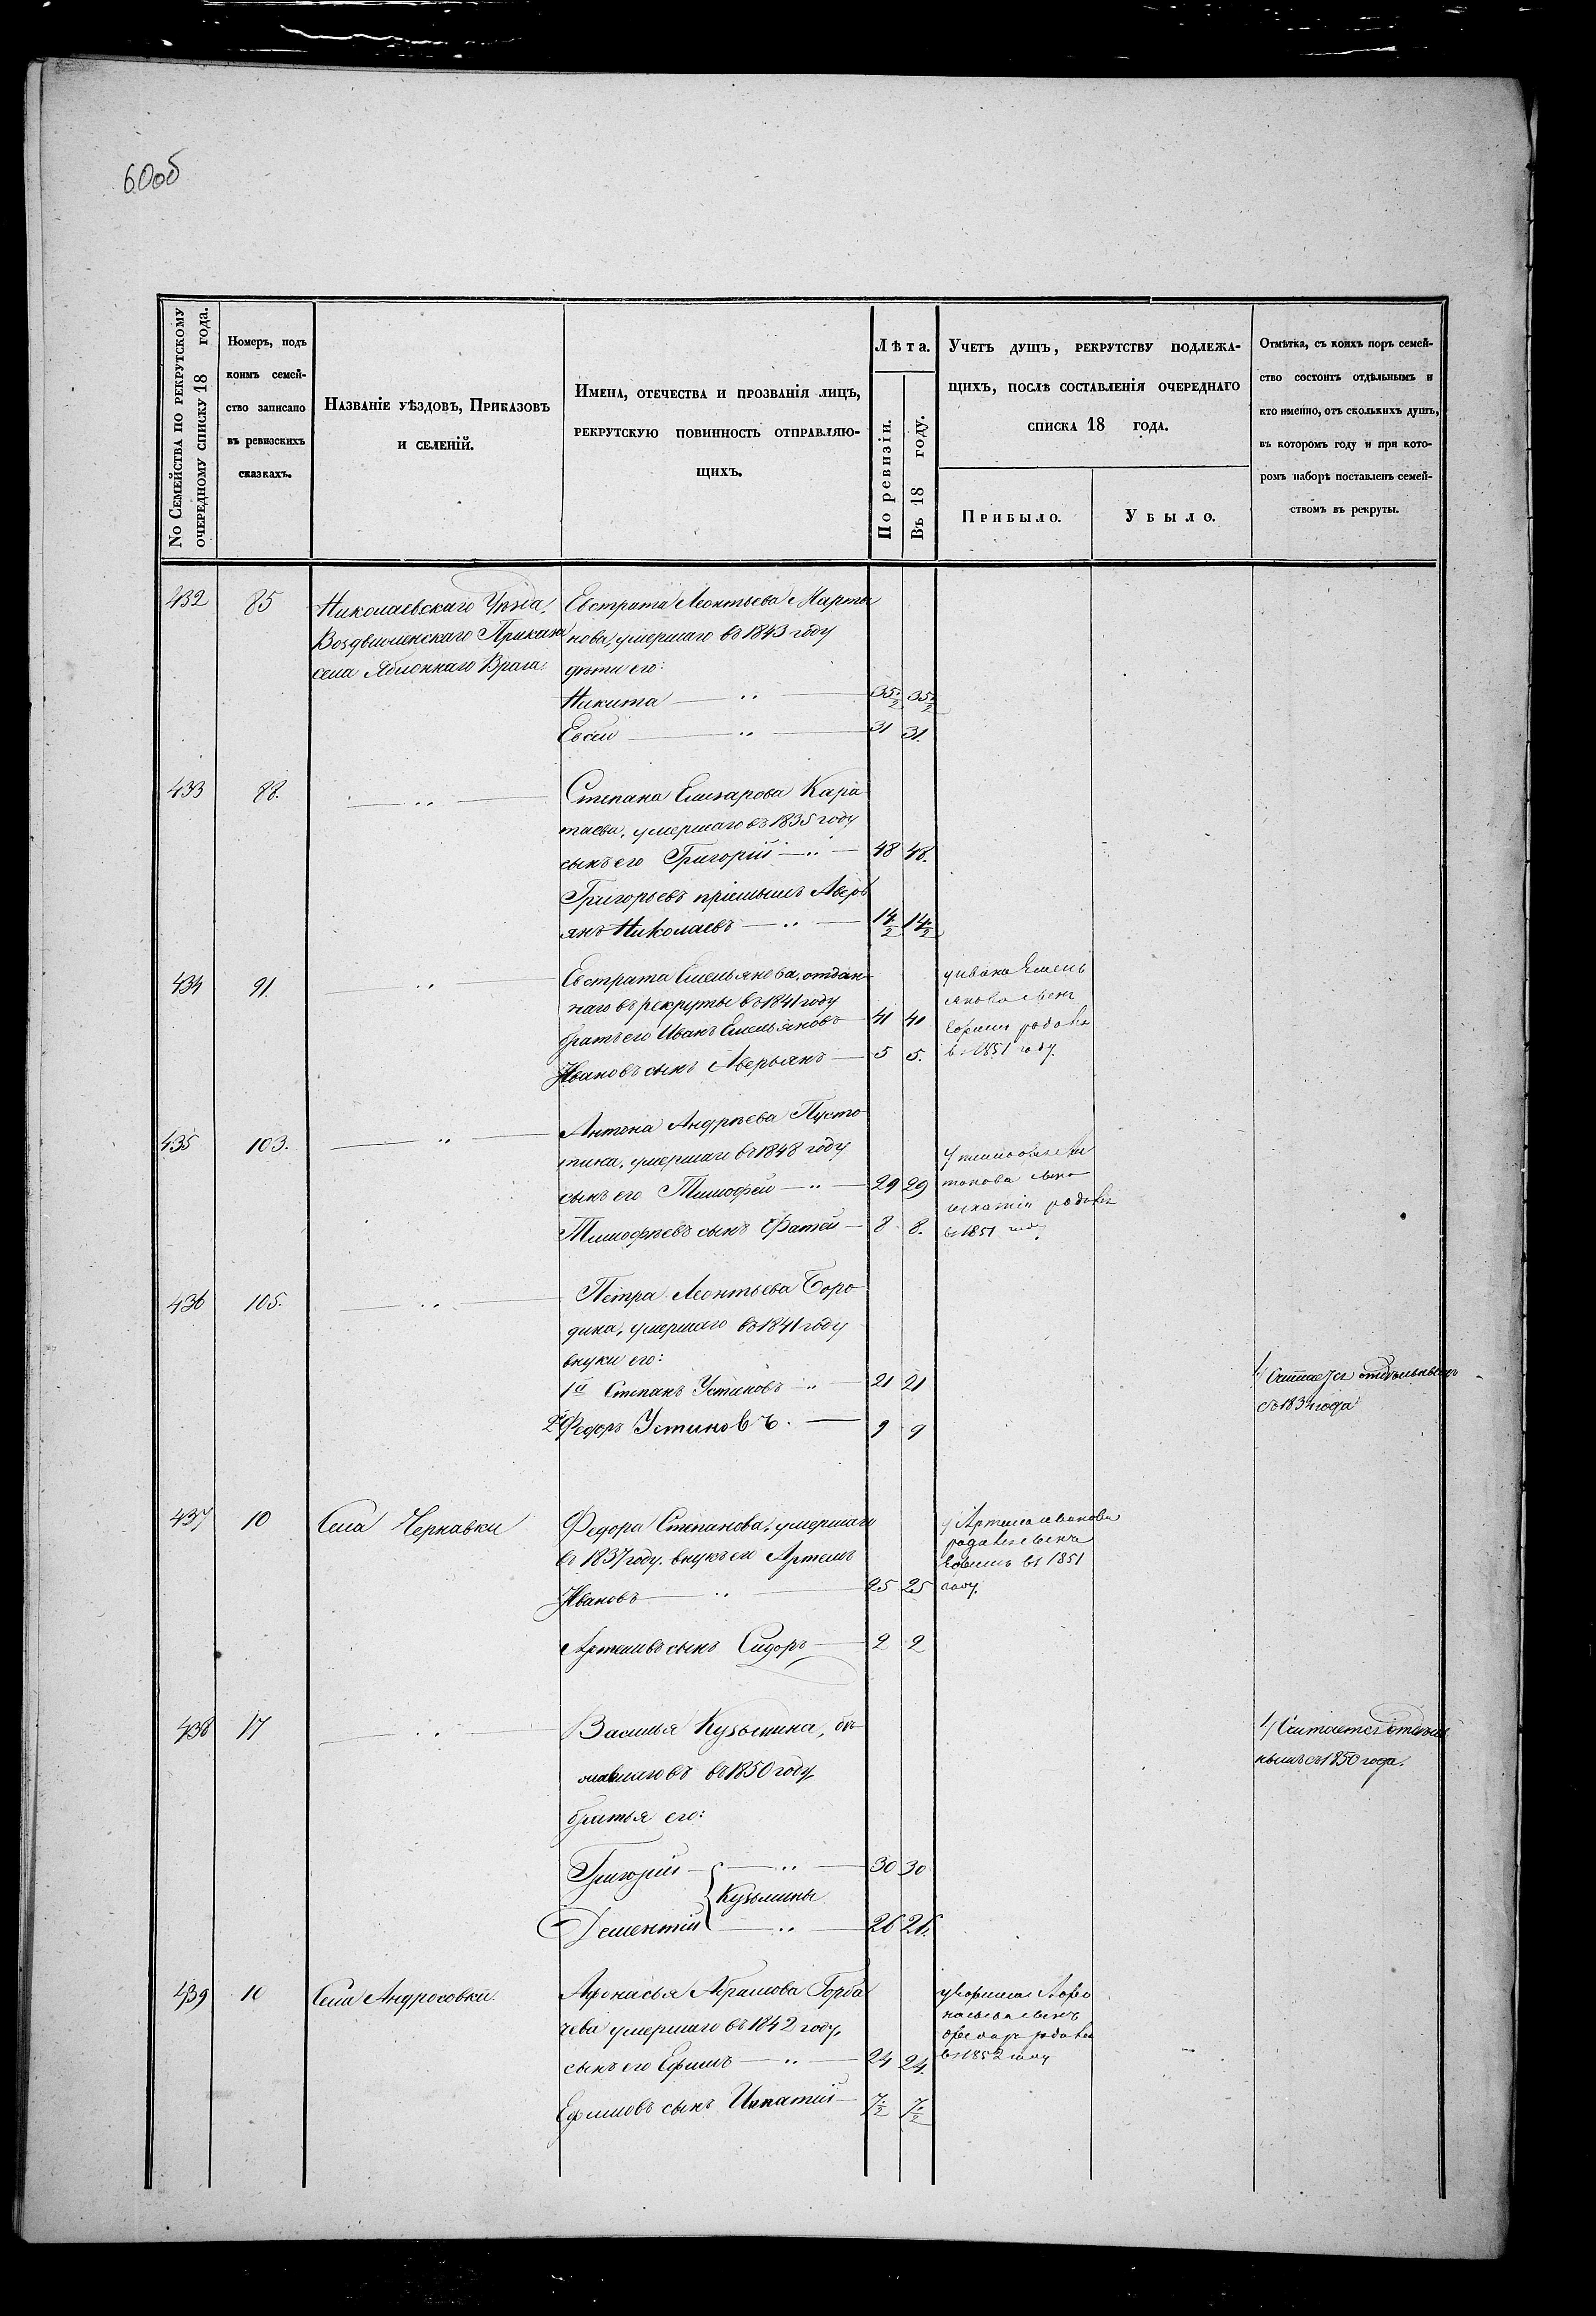 60об
No Семейства по рекрутскому
очередному списку 18 года.
Номеръ, подъ
коимъ семей-
ство записано
въ ревизскихъ
сказкахъ.
Названіе уѣздовъ, Приказовъ
и селеній.
Имена, отечества и прозванія лицъ,
рекрутскую повинность отправляю-
щихъ.
Лѣта.
По ревизіи.
Въ 18 году.
Учетъ душъ, рекрутству подлежа-
щихъ, послѣ составленія очереднаго
списка 18 года.
Прибыло.
Убыло.
Отмѣтка, съ коихъ поръ семей-
ство состоитъ отдѣльнымъ и
кто именно, отъ сколькихъ душъ,
въ которомъ году и при кото-
ромъ наборѣ поставленъ семей-
ствомъ въ рекруты.
432 85
Николаевскаго Уѣзда,
Воздвиженскаго Приказа
села Яблоннаго Врага:
Евстрата Леонтьева Марты
нова, умершаго въ 1843 году
дѣти его:
Никита — " — 35 1/2 35 1/2
Евсей — " — 31 31.
433 88. — " —
Степана Елизарова Кара
таева, умершаго въ 1835 году
сынъ его Григорій — " — 48 48.
Григорьевъ пріемышъ Аверь
янъ Николаевъ — " — 14 1/2 14 1/2
434 91. — " —
Евстрата Емельянова, отдан
наго въ рекруты въ 1841 году
братъ его Иванъ Емельяновъ 41 41
Ивановъ сынъ Аверьянъ — 5 5.
у Ивана Емель
янова сынъ
родовъ
въ 1851 году.
435 103. — " —
Антона Андрѣева Пусто
тина, умершаго въ 1848 году
сынъ его Тимофей — " — 29 29
Тимофѣевъ сынъ Фатей — 8 8.
у Тимофея Ан
тонова сынъ
родовъ
въ 1851 году
436 105. — " —
Петра Леонтьева Боро
дина, умершаго въ 1841 году
внуки его:
1й Степанъ Устиновъ — " — 21 21
2й Федоръ Устиновъ. — 9 9
1/ Считается отдѣльнымъ
съ 1834 года
437 10 Села Чернавки
Федора Степанова, умершаго
въ 1837 году. внукъ его Артемъ
Ивановъ — " — 25 25
Артемовъ сынъ Сидоръ — 2 2
у Артема Иванова
родился сынъ
въ 1851
году.
438 17 — " —
Василья Кузьмина, бѣ
жавшаго въ 1850 году
братья его:
Григорій — " — 30 30
Кузьмины
Дементій — " — 26 26.
1/ Считается отдѣль
нымъ съ 1850 года.
439 10 Села Андросовки.
Афонасья Абрамова Горба
чева умершаго въ 1842 году,
сынъ его Ефимъ — " — 24 24.
Ефимовъ сынъ Игнатій — 7 1/2 7 1/2
у Ефима Афо
насьева сынъ
родовъ
въ 1852 году